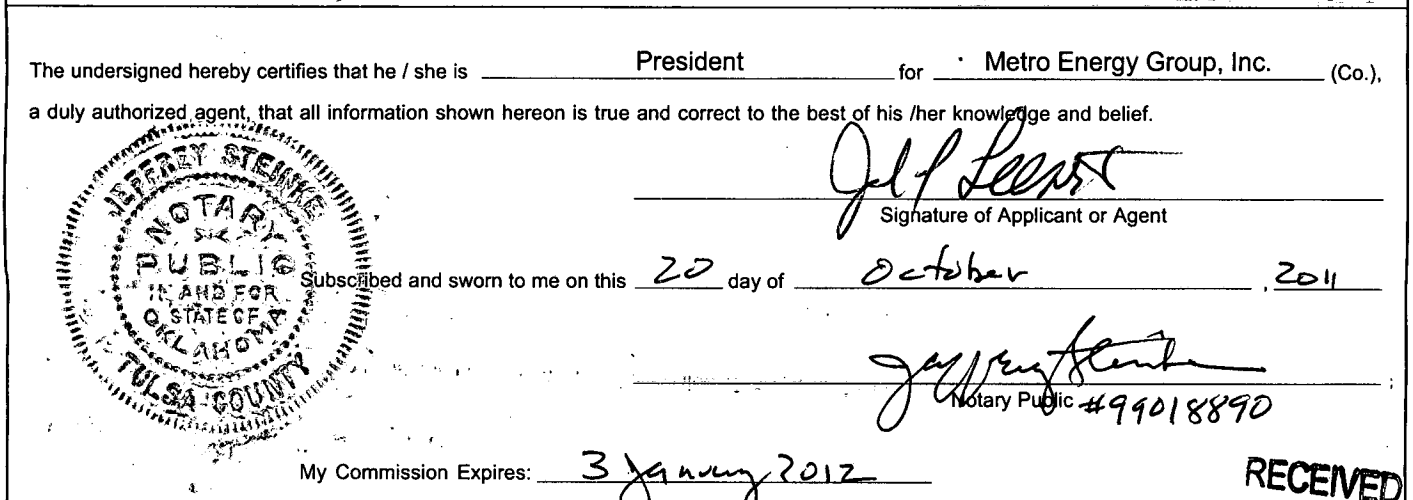 The undersigned hereby certifies that he / she is President for Metro Energy Group, Inc. (Co.),
a duly authorized agent, that all information shown hereon is true and correct to the best of his /her knowledge and belief.
Signature of Applicant or Agent
JEFFREY STEINKE
NOTARY
PUBLIC
IN AND FOR
STATE OF
OKLAHOMA
TULSA COUNTY
Subscribed and sworn to me on this 20 day of October , 2011
Jeffrey Steinke
Notary Public #99018890
My Commission Expires: 3 January 2012
RECEIVED